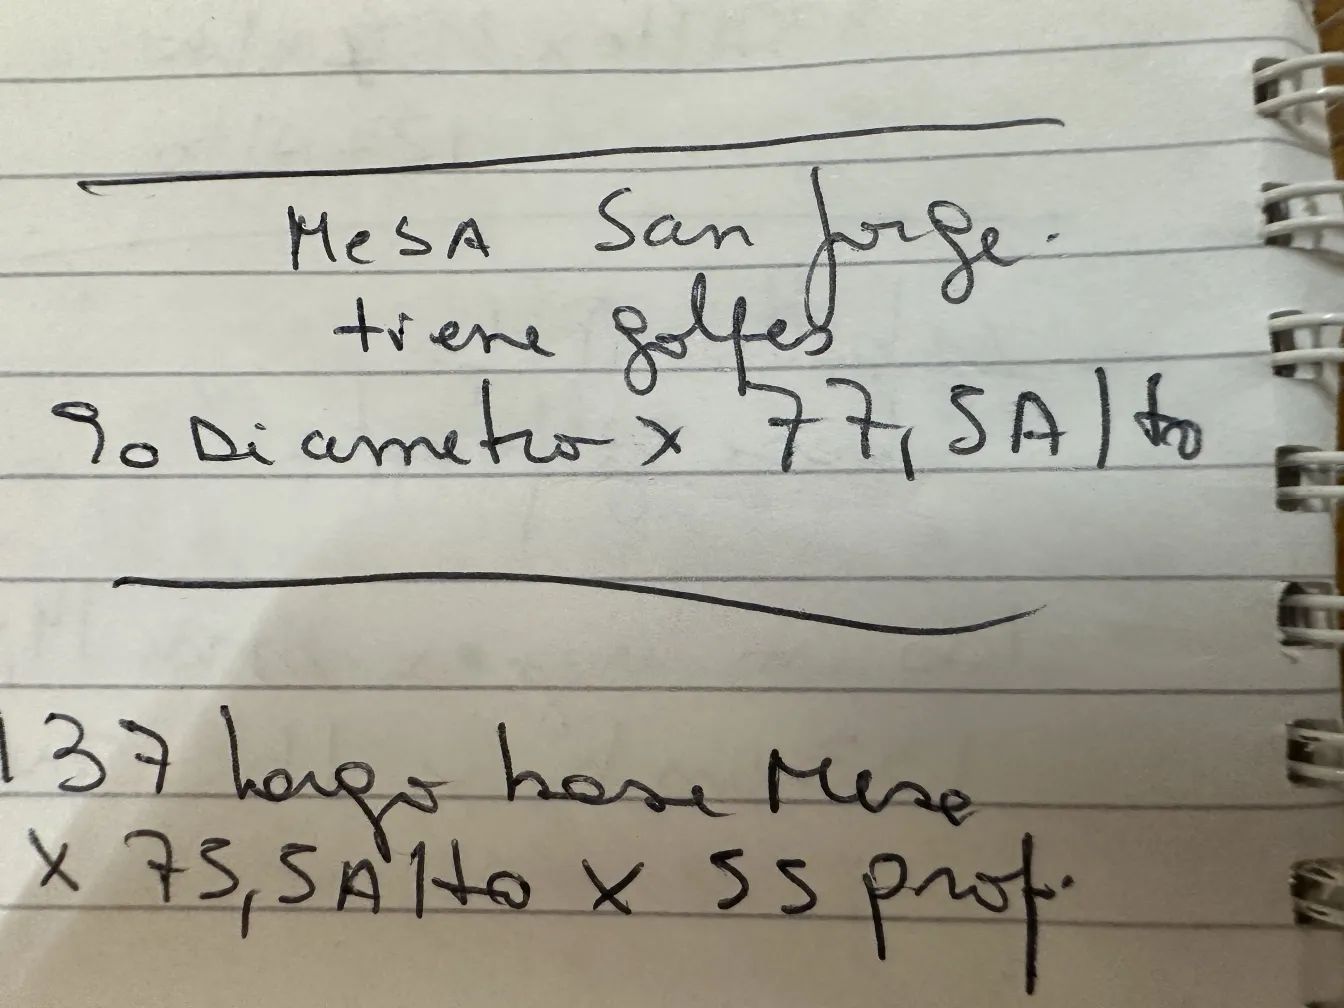 MeSA San Jorge.
tiene golpes
90 Diametro x 77,5 Alto
137 largo base Mesa
x 75,5 Alto x 55 prof.